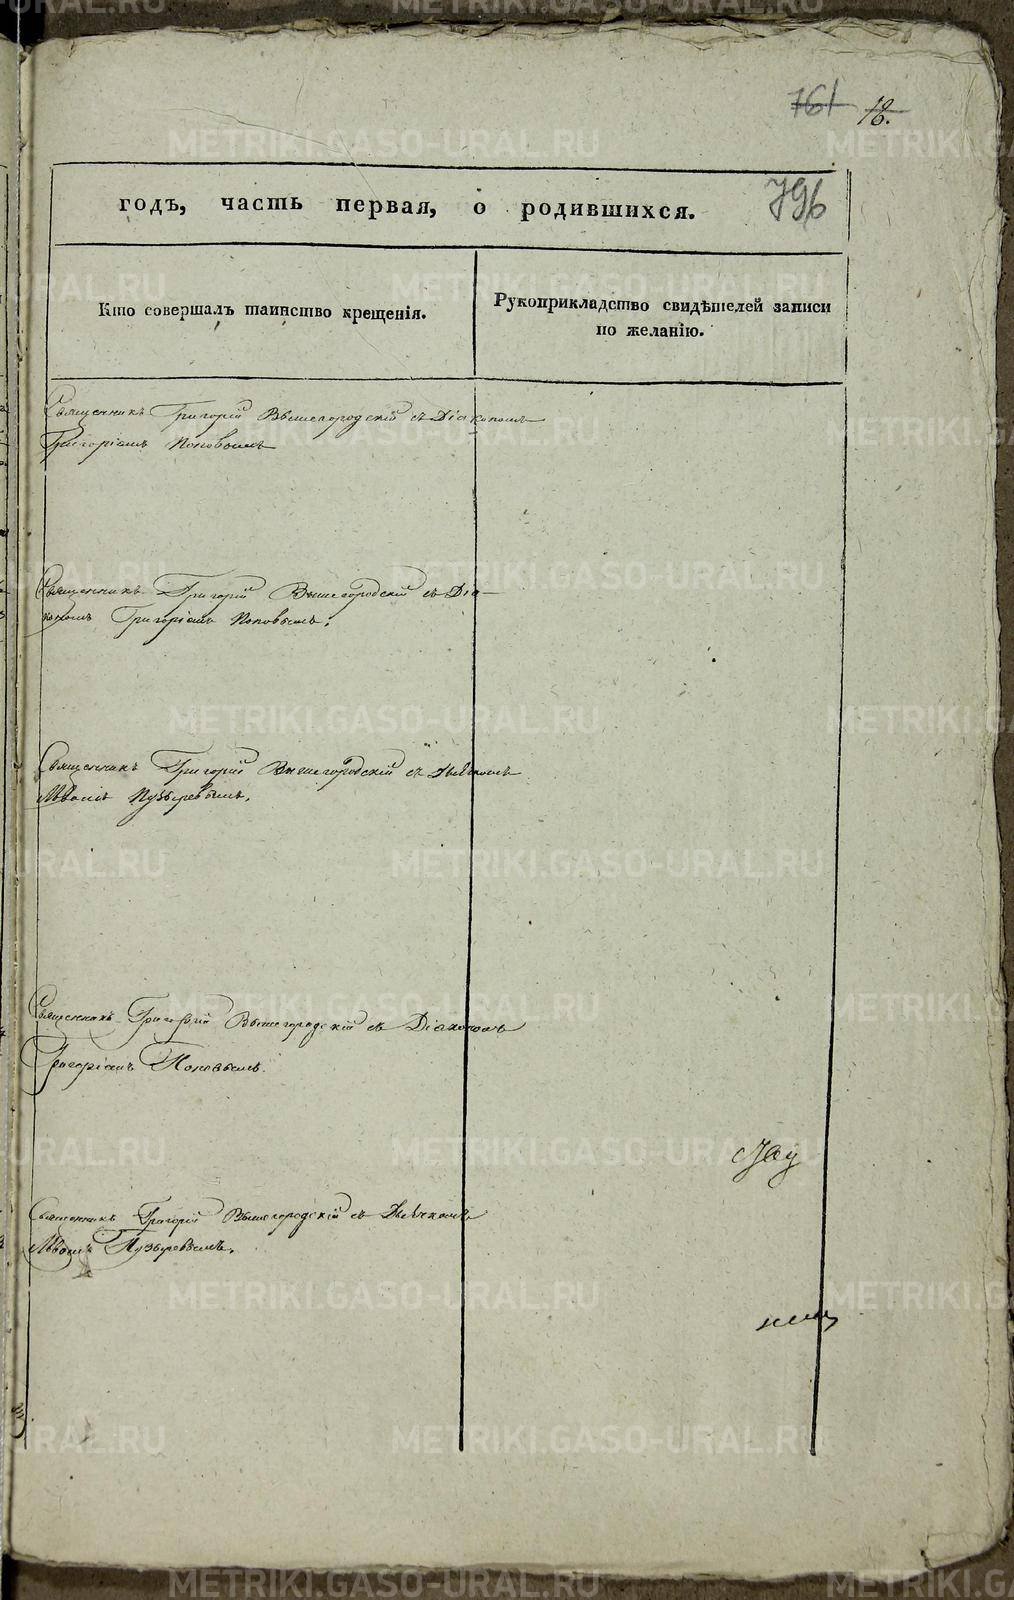 761 18.
796
годъ, часть первая, о родившихся.
Кто совершалъ таинство крещенія.
Рукоприкладство свидѣтелей записи
по желанію.
Священникъ Григорій Вышегородскій съ Діакономъ
Григоріемъ Поповымъ
Священникъ Григорій Вышегородскій съ Діа-
кономъ Григоріемъ Поповымъ.
Священникъ Григорій Вышегородскій съ Дьячкомъ
Пузыревымъ.
Священникъ Григорій Вышегородскій съ Діакономъ
Григоріемъ Поповымъ.
Священникъ Григорій Вышегородскій съ Дьячкомъ
Пузыревымъ.
METRIKI.GASO-URAL.RU